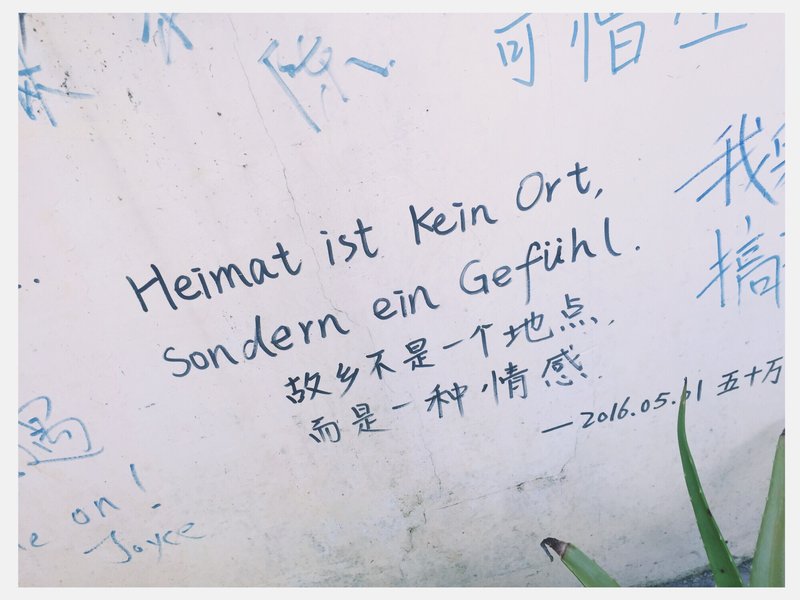 可惜
我
搞
Heimat ist Kein Ort,
Sondern ein Gefühl.
故乡不是一个地点,
而是一种情感.
—2016.05.01 五十万
遇
on!
Joyce